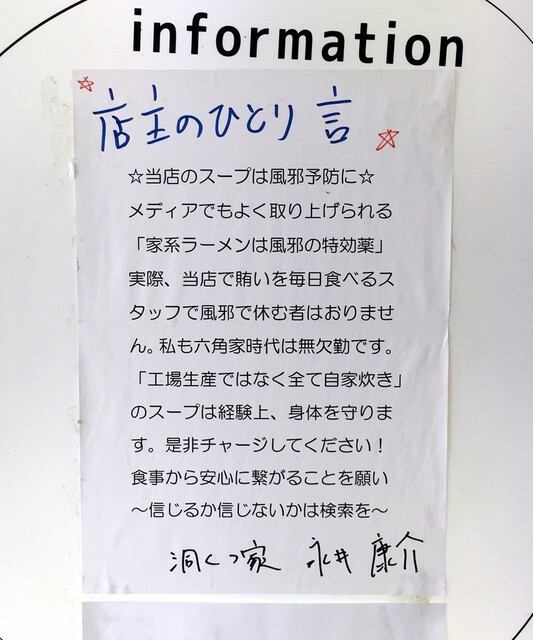 information
店主のひとり言
☆当店のスープは風邪予防に☆
メディアでもよく取り上げられる
「家系ラーメンは風邪の特効薬」
実際、当店で賄いを毎日食べるス
タッフで風邪で休む者はおりませ
ん。私も六角家時代は無欠勤です。
「工場生産ではなく全て自家炊き」
のスープは経験上、身体を守りま
す。是非チャージしてください！
食事から安心に繋がることを願い
～信じるか信じないかは検索を～
洞くつ家 永井 康介